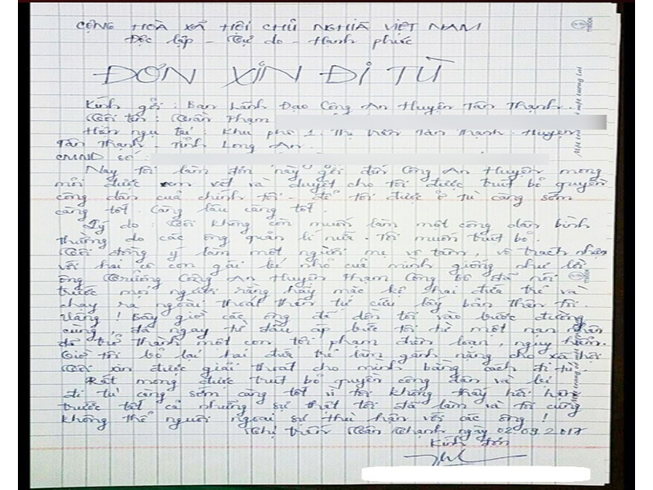 CỘNG HOÀ XÃ HỘI CHỦ NGHĨA VIỆT NAM
Độc lập - Tự do - Hạnh phúc
ĐƠN XIN ĐI TÙ
Kính gởi : Ban Lãnh Đạo Công An Huyện Tân Thạnh.
Tôi tên : Trần Phạm
Hiện ngụ tại : Khu phố 1. Thị trấn Tân Thạnh - Huyện
Tân Thạnh - Tỉnh Long An.
CMND số :
Nay tôi làm đơn này gởi đến Công An Huyện mong
mỏi được xem xét và duyệt cho tôi được trút bỏ quyền
công dân của chính tôi. để tôi được ở tù càng sớm
càng tốt. Càng lâu càng tốt.
Lý do : Tôi không còn muốn làm một công dân bình
thường do các ông quản lí nữa. Tôi muốn trút bỏ.
Tôi đồng ý làm một người mẹ vô tâm, vô trách nhiệm
với hai con gái bé nhỏ của mình giống như lời
ông Trưởng Công An Huyện Phạm Công Bố đã nói
trước mọi người rằng hãy mặc kệ hai đứa trẻ và
chạy ra ngoài thoát thân tự cứu lấy bản thân tôi.
Vâng ! Bây giờ các ông đã dồn tôi vào bước đường
cùng, đã ngay từ đầu ép bức tôi từ một nạn nhân
đã trở thành một con tội phạm điên loạn, nguy hiểm.
Giờ tôi bỏ lại hai đứa trẻ làm gánh nặng cho xã hội
Tôi xin được giải thoát cho mình bằng cách đi tù.
Rất mong được trút bỏ quyền công dân và bị
đi tù càng sớm càng tốt vì tôi không thấy hối hận
trước tất cả những sự thật tôi đã làm và tôi cũng
không thể nguôi ngoai sự thù hận với các ông !
Thị trấn Tân Thạnh ngày 02.09.2017
Kính đơn